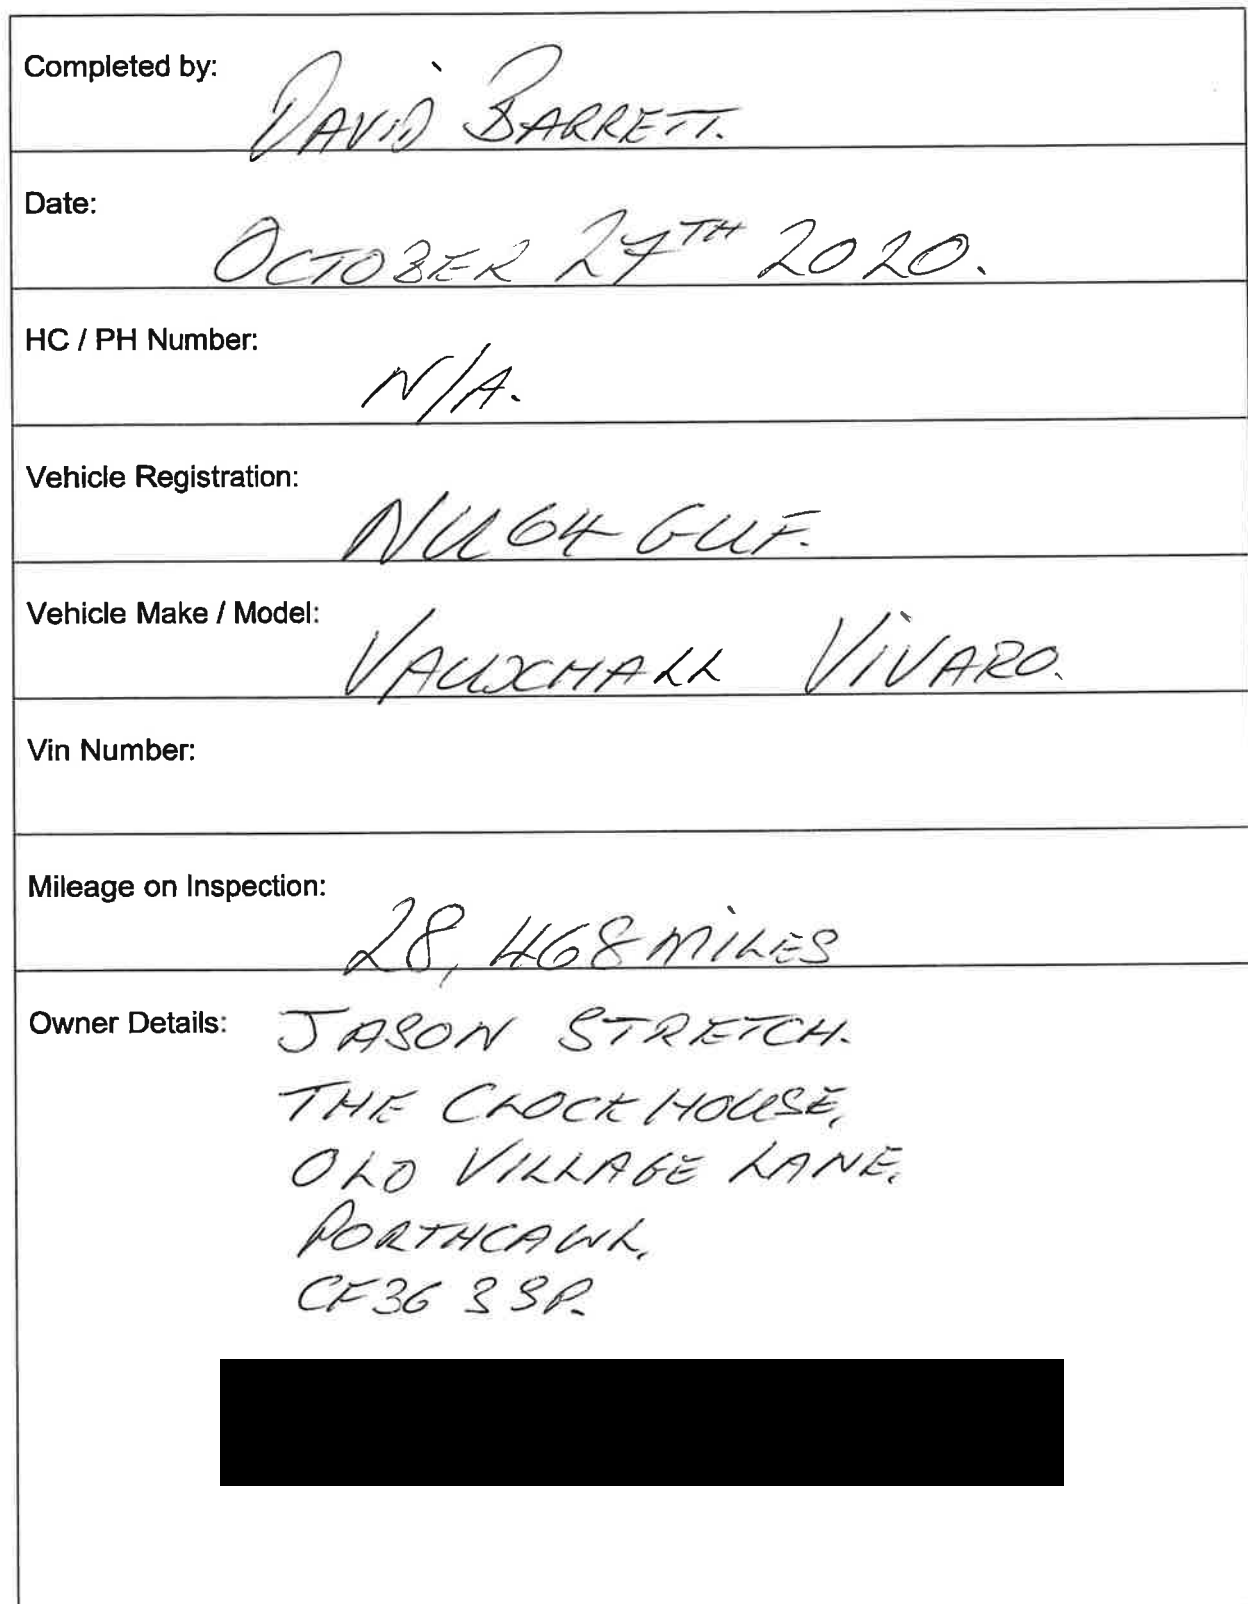 Completed by:
DAVID BARRETT.
Date:
OCTOBER 27TH 2020.
HC / PH Number:
N/A.
Vehicle Registration:
NU64 GUF.
Vehicle Make / Model:
VAUXHALL VIVARO.
Vin Number:
Mileage on Inspection:
28,468 MILES
Owner Details: JASON STRETCH.
THE CLOCK HOUSE,
OLD VILLAGE LANE,
PORTHCAWL,
CF36 3SP.